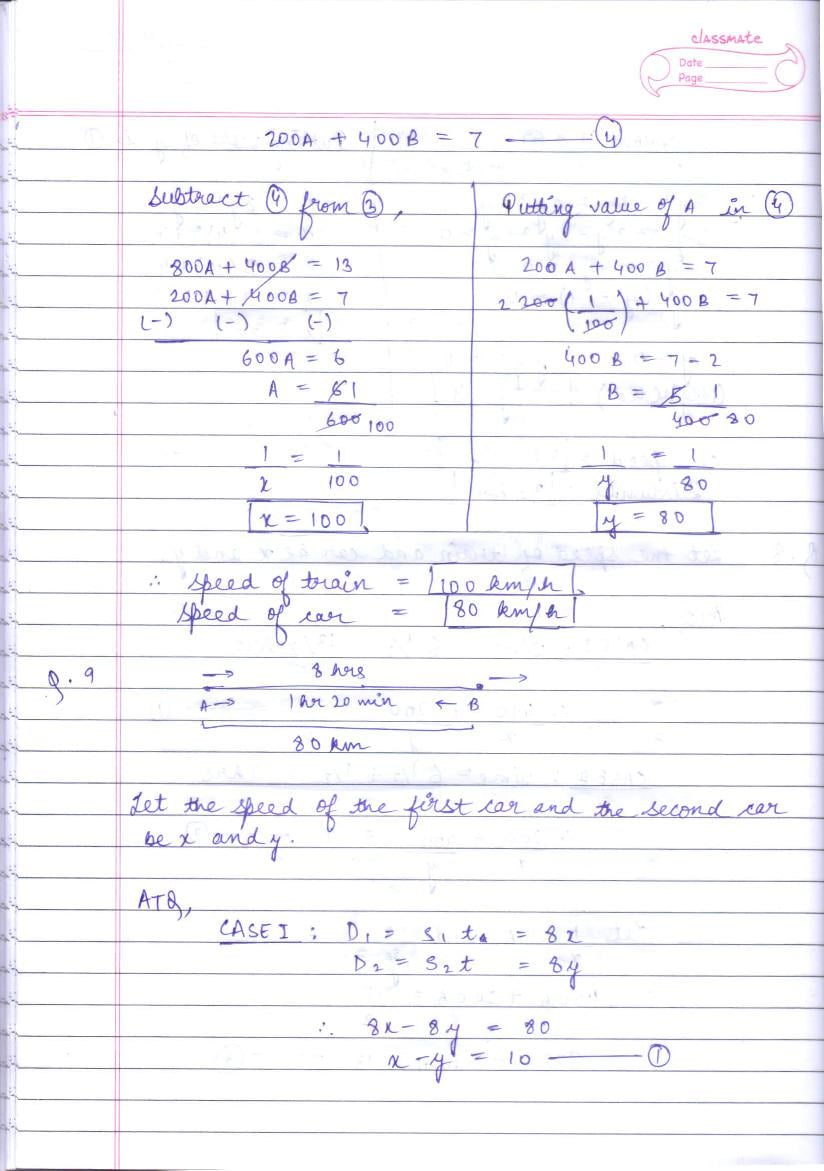 classmate
Date
Page
200A + 400B = 7 ——— ④
Subtract ④ from ③,
800A + 400B = 13
200A + 400B = 7
(-) (-) (-)
600A = 6
A = 6 1
600 100
1/x = 1/100
x = 100
Putting value of A in ④
200A + 400B = 7
2 200 (1/100) + 400B = 7
400B = 7 - 2
B = 5 1
400 80
1/y = 1/80
y = 80
∴ speed of train = 100 km/h
speed of car = 80 km/h
Q.9
→ 8 hrs →
A→ 1 hr 20 min ← B
80 km
Let the speed of the first car and the second car
be x and y.
ATQ,
CASE I : D₁ = S₁ t = 8x
D₂ = S₂ t = 8y
∴ 8x - 8y = 80
x - y = 10 ——— ①